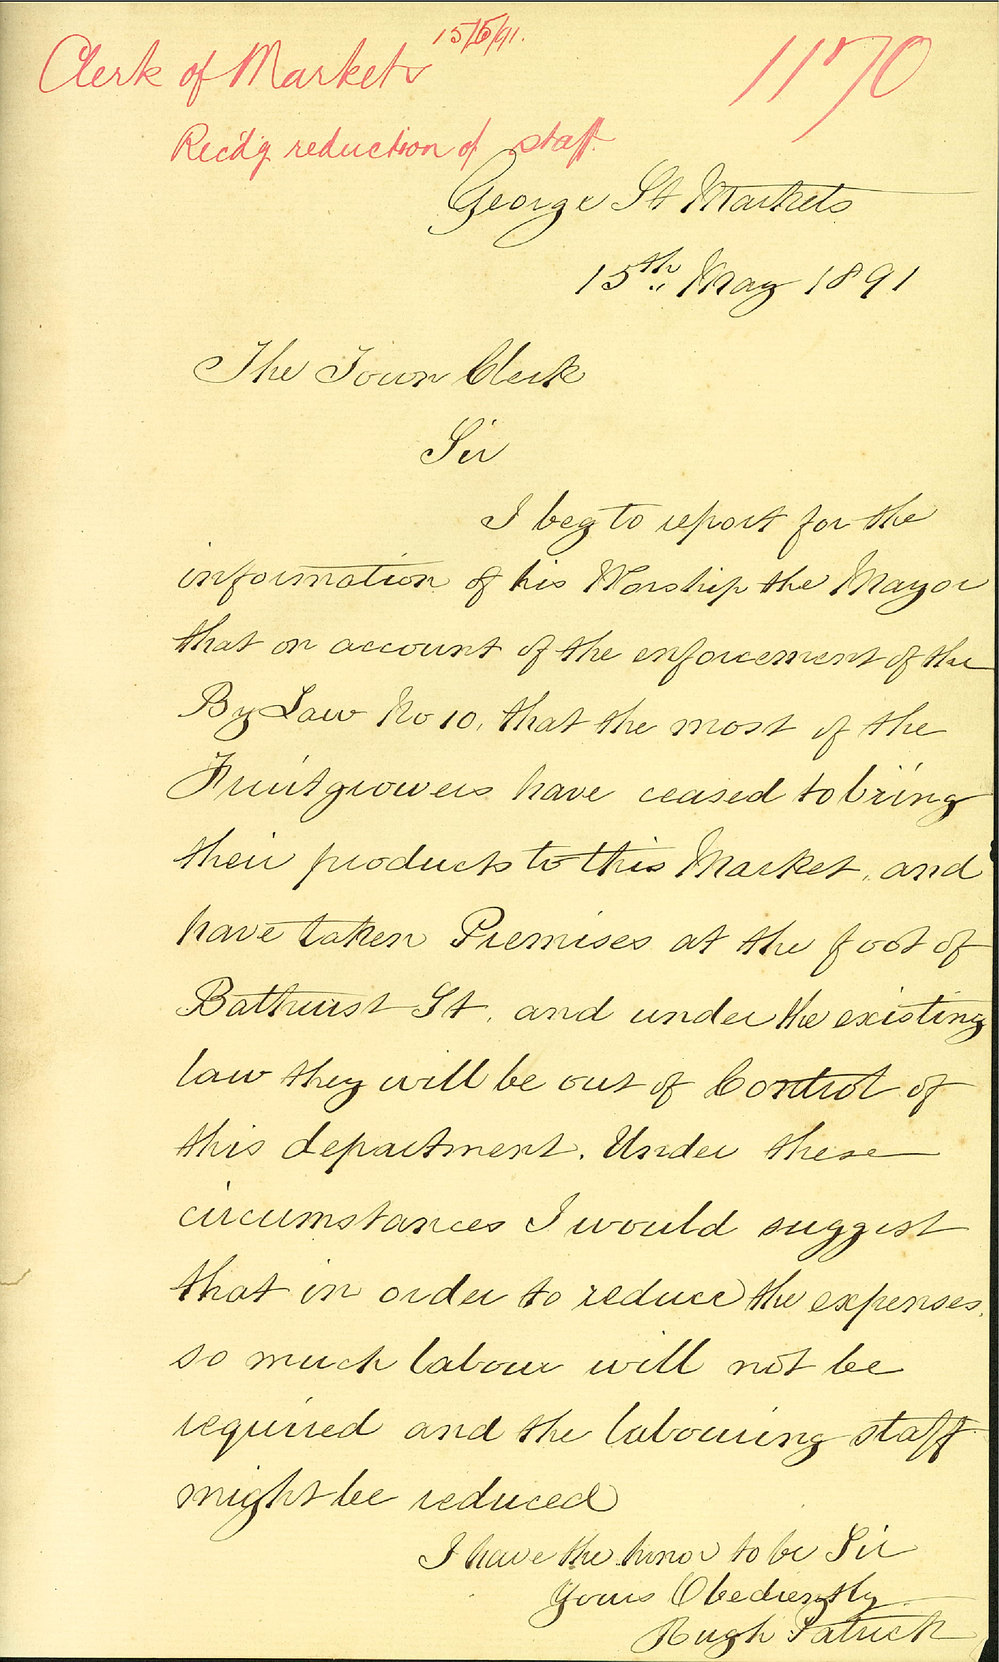 15/5/91.
Clerk of Markets
1170
Rec'd'g reduction of staff
George St Markets
15th May 1891
The Town Clerk
Sir
I beg to report for the
information of his Worship the Mayor
that on account of the enforcement of the
By Law No 10, that the most of the
Fruitgrowers have ceased to bring
their products to this Market, and
have taken Premises at the foot of
Bathurst St, and under the existing
law they will be out of Control of
this department. Under these
circumstances I would suggest
that in order to reduce the expenses,
so much labour will not be
required and the labouring staff
might be reduced
I have the honor to be Sir
Yours Obediently
Hugh Patrick